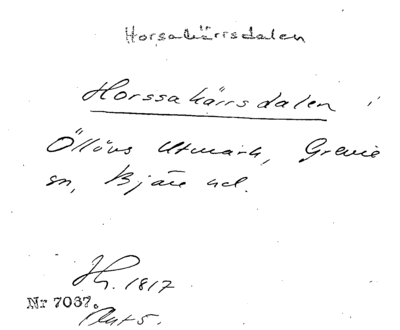 Horsakärrsdalen
Horssakärrsdalen i
Öllövs Utmark, Grevie
sn, Bjäre hd.
1817
Nr 7037.
Akt 5.